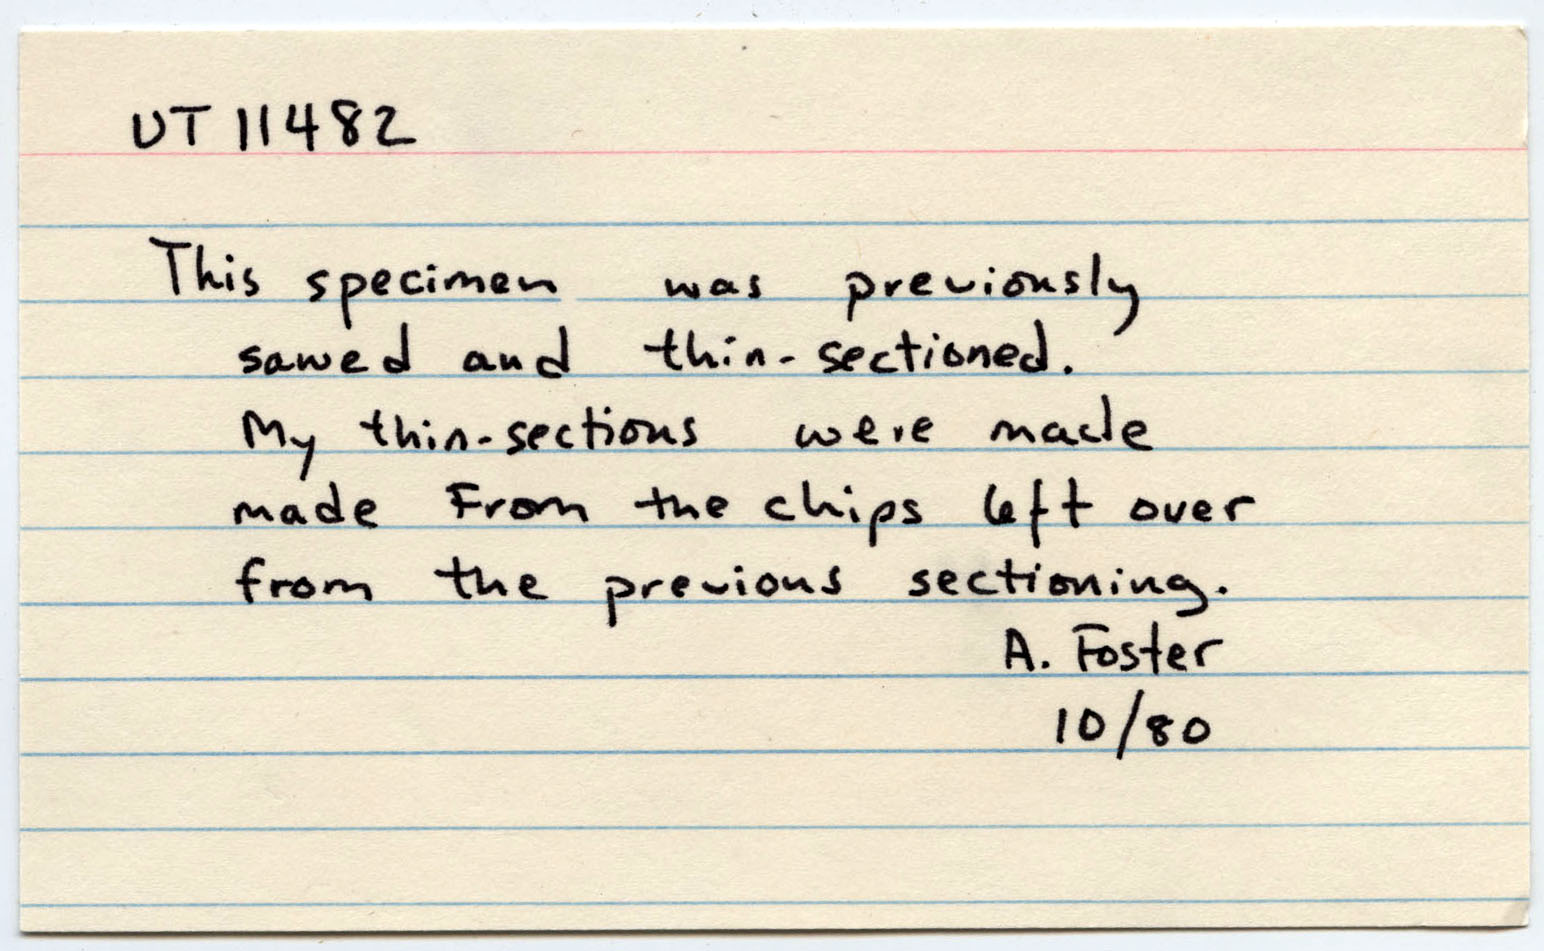 UT 11482
This specimen was previously
sawed and thin-sectioned.
My thin-sections were made
made From the chips left over
from the previous sectioning.
A. Foster
10/80